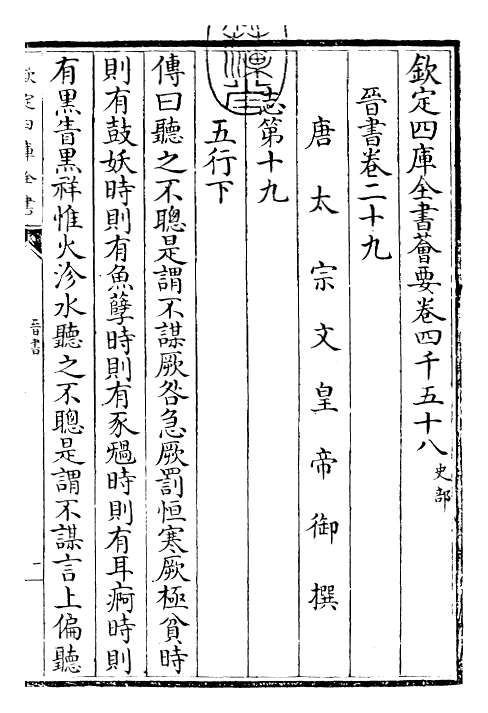 欽定四庫全書薈要卷四千五十八 史部
晉書卷二十九
唐太宗文皇帝御撰
志第十九
五行下
傳曰聽之不聰是謂不謀厥咎急厥罰恒寒厥極貧時
則有鼓妖時則有魚孽時則有豕禍時則有耳痾時則
有黑眚黑祥惟火沴水聽之不聰是謂不謀言上偏聽
欽定四庫全書
晉書